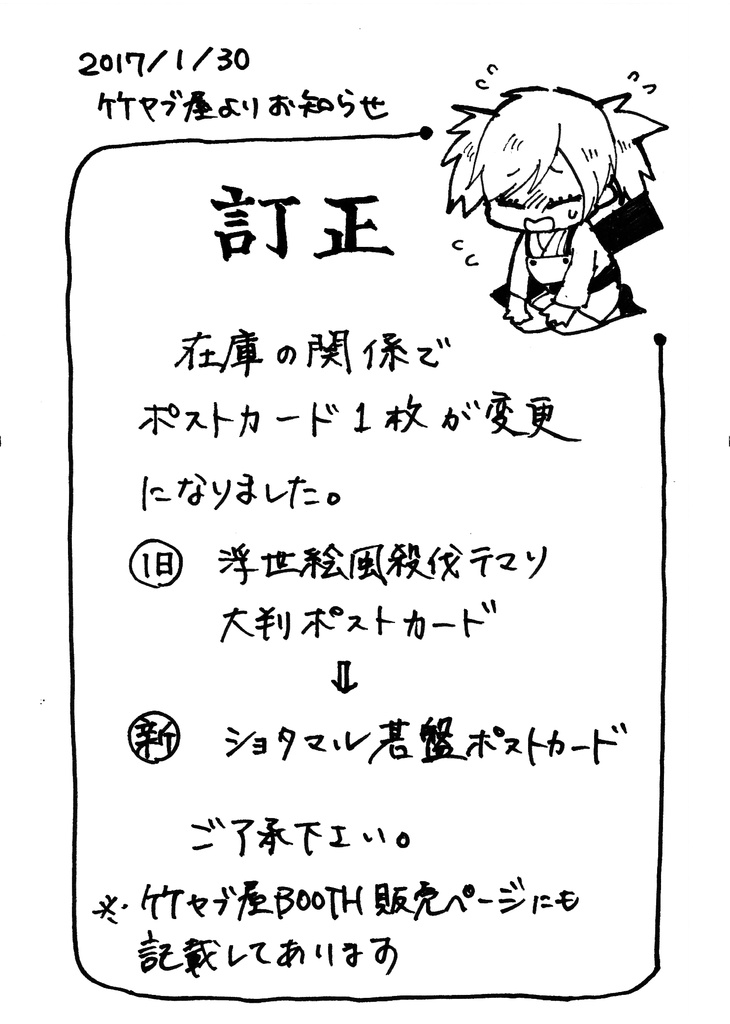 2017/1/30
竹ヤブ屋よりお知らせ
訂正
在庫の関係で
ポストカード1枚が変更
になりました。
旧 浮世絵風殺伐テマリ
大判ポストカード
⇩
新 ショタマル碁盤ポストカード
ご了承下エい。
※・竹ヤブ屋BOOTH販売ページにも
記載してあります